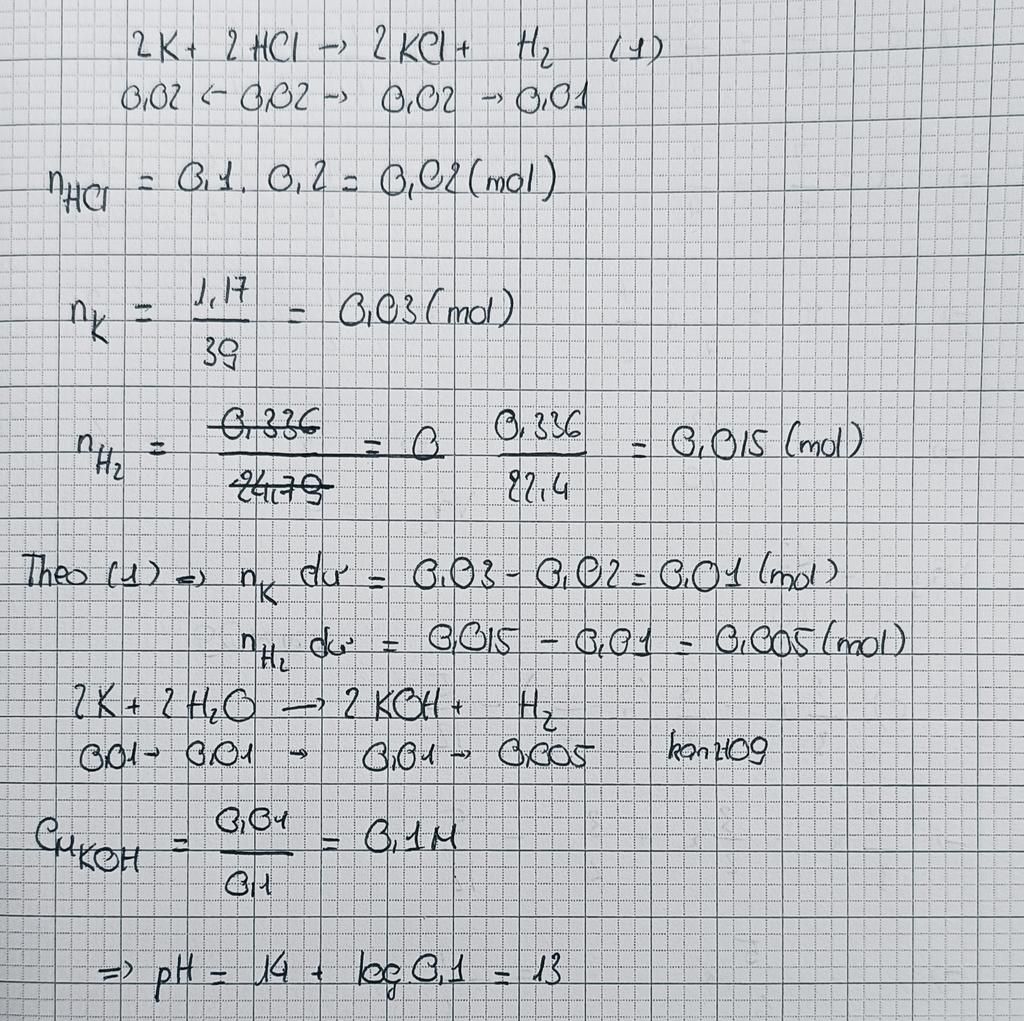 2K + 2HCl → 2KCl + H₂ (1)
0,02 ← 0,02 → 0,02 → 0,01
nHCl = 0,1. 0,2 = 0,02 (mol)
nK = 1,17/39 = 0,03 (mol)
nH₂ = 0,336/24,79 = 0 0,336/22,4 = 0,015 (mol)
Theo (1) => nK dư = 0,03 - 0,02 = 0,01 (mol)
nH₂ dư = 0,015 - 0,01 = 0,005 (mol)
2K + 2H₂O → 2KOH + H₂
0,01 → 0,01 → 0,01 → 0,005
CM KOH = 0,01/0,1 = 0,1M
=> pH = 14 + log 0,1 = 13